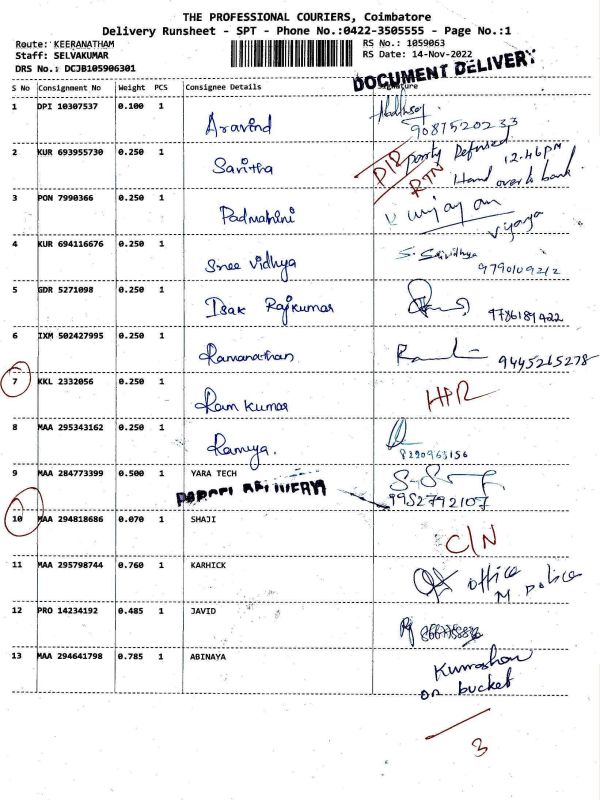 THE PROFESSIONAL COURIERS, Coimbatore
Delivery Runsheet - SPT - Phone No.:0422-3505555 - Page No.:1
Route: KEERANATHAM
RS No.: 1059063
Staff: SELVAKUMAR
RS Date: 14-Nov-2022
DRS No.: DCJB105906301
DOCUMENT DELIVERY
S No Consignment No Weight PCS Consignee Details Signature
1 DPI 10307537 0.100 1 Aravind
9087520233
2 KUR 693955730 0.250 1 Savitha
party Refused 12.46 PM
RTN Hand over to bank
3 PON 7990366 0.250 1 Padmahini
Vijaya
4 KUR 694116676 0.250 1 Sree Vidhya S. Srividhya
9790109212
5 GDR 5271098 0.250 1 Isak Rajkumar
9786189422
6 IXM 502427995 0.250 1 Ramanathan
9445265278
7 KKL 2332056 0.250 1 Ram Kumar
8 MAA 295343162 0.250 1 Ramya.
8290963156
9 MAA 284773399 0.500 1 YARA TECH
9952792107
PARCEL DELIVERY
10 MAA 294818686 0.070 1 SHAJI
C/N
11 MAA 295798744 0.760 1 KARHICK
office
M. police
12 PRO 14234192 0.485 1 JAVID
13 MAA 294641798 0.785 1 ABINAYA
on bucket
3